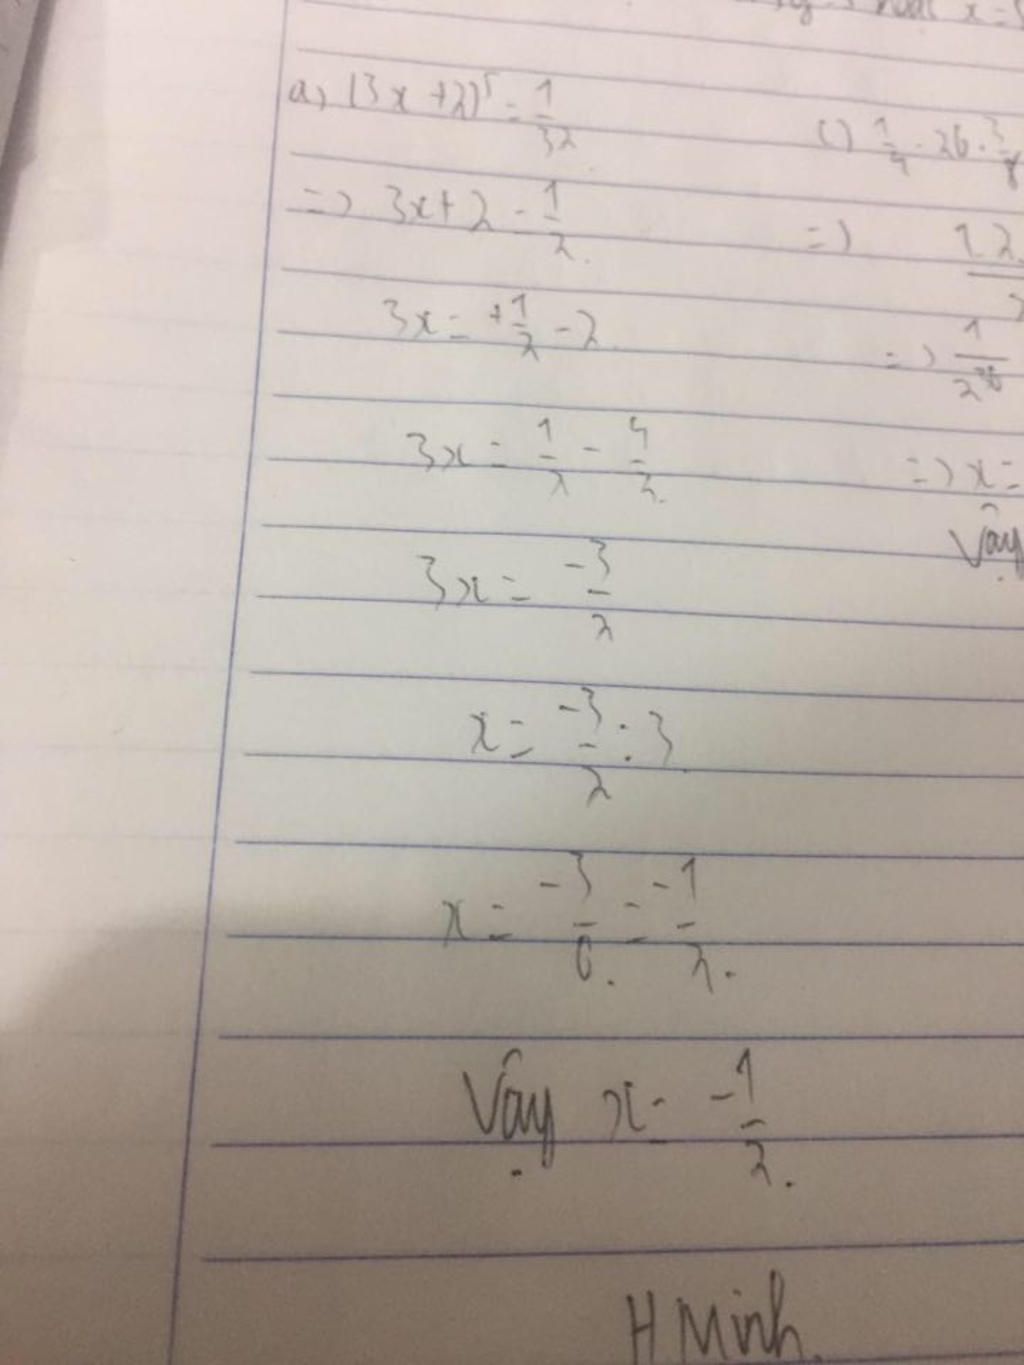 x =
a, (3x + 2)⁵ = 1/32
=> 3x + 2 = 1/2.
3x = +1/2 - 2
3x = 1/2 - 4/2.
3x = -3/2
x = -3/2 : 3
x = -3/6. = -1/2.
Vậy x = -1/2.
H Minh.
c) 1/4 . 26 . 3/8
=>
=> 1/2
=> x =
Vậy